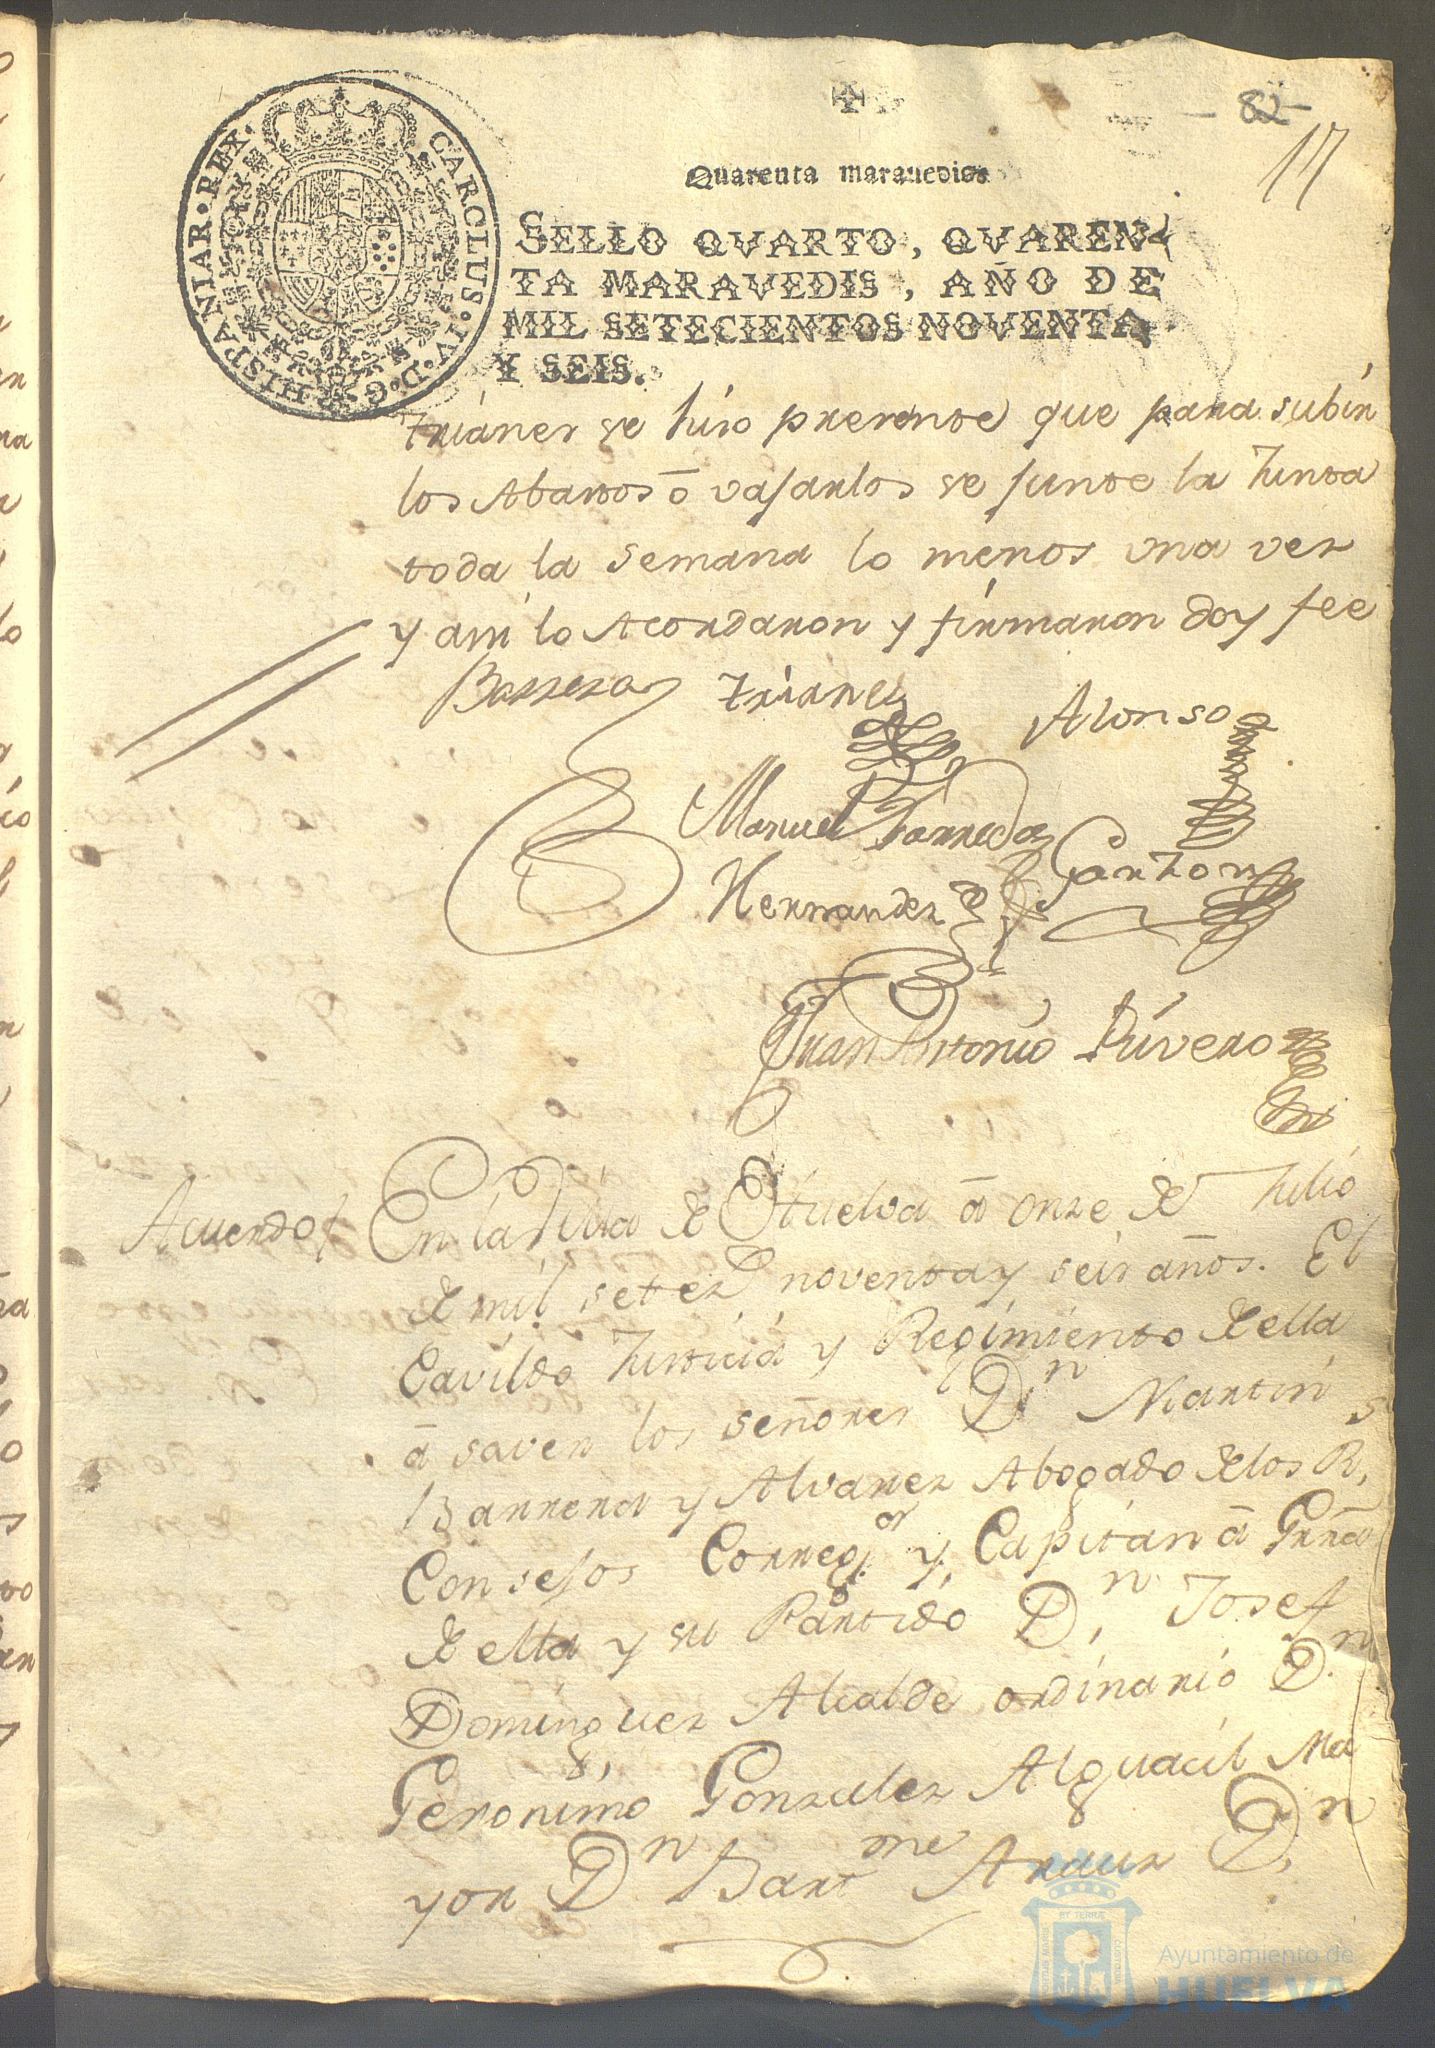 - 82 -
17
Quarenta marauedios
CAROLUS·IV·D·G·HISPANIAR·REX·
SELLO QVARTO, QVAREN-
TA MARAVEDIS, AÑO DE
MIL SETECIENTOS NOVENTA
Y SEIS.
trianes se hiso presente que para subir
los Abastos ō vajarlos se junte la Junta
toda la semana lo menos una vez
y asi lo Acordaron y firmaron doy fee
Barrera Trianes Alonso
Manuel Barreda
Hernandez Garzon
Juan Antonio Rivero
Acuerdo En la Villa de Huelva ā onze de Julio
de mil setez.s noventa y seis años. El
Cavildo Justicia y Regimiento de ella
ā saver los señores D.n Martin
Barrera y Alvarez Abogado de los R.s
Consejos Correg.or y Capitan ā Grrā
de ella y su Partido D.n Josef
Dominguez Alcalde ordinario D.n
Geronimo Gonzalez Alguacil Ma
yor D.n Bart.me Arauz D.n
Ayuntamiento de
HUELVA